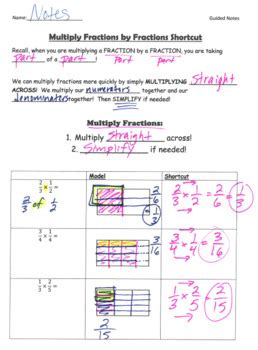 Name: Notes Guided Notes
Multiply Fractions by Fractions Shortcut
Recall, when you are multiplying a FRACTION by a FRACTION, you are taking
part of a part!
part part
We can multiply fractions more quickly by simply MULTIPLYING straight
ACROSS! We multiply our numerators together and our
denominators together! Then SIMPLIFY if needed!
Multiply Fractions:
1. Multiply straight across!
2. Simplify if needed!
Model Shortcut
2/3 × 1/2 = 2/6 = 1/3 2/3 × 1/2 = 2/6 = 1/3
2/3 of 1/2
3/4 × 1/4 = 3/16 3/4 × 1/4 = 3/16
1/3 × 2/5 = 1/3 × 2/5 = 2/15
2/15